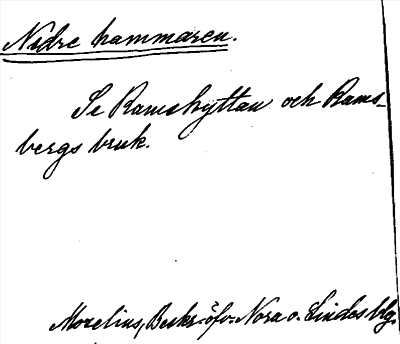 Nedre hammaren.
Se Ramshyttan och Rams-
bergs bruk.
Morelius, Beskr. öfv. Nora o. Lindes blg.